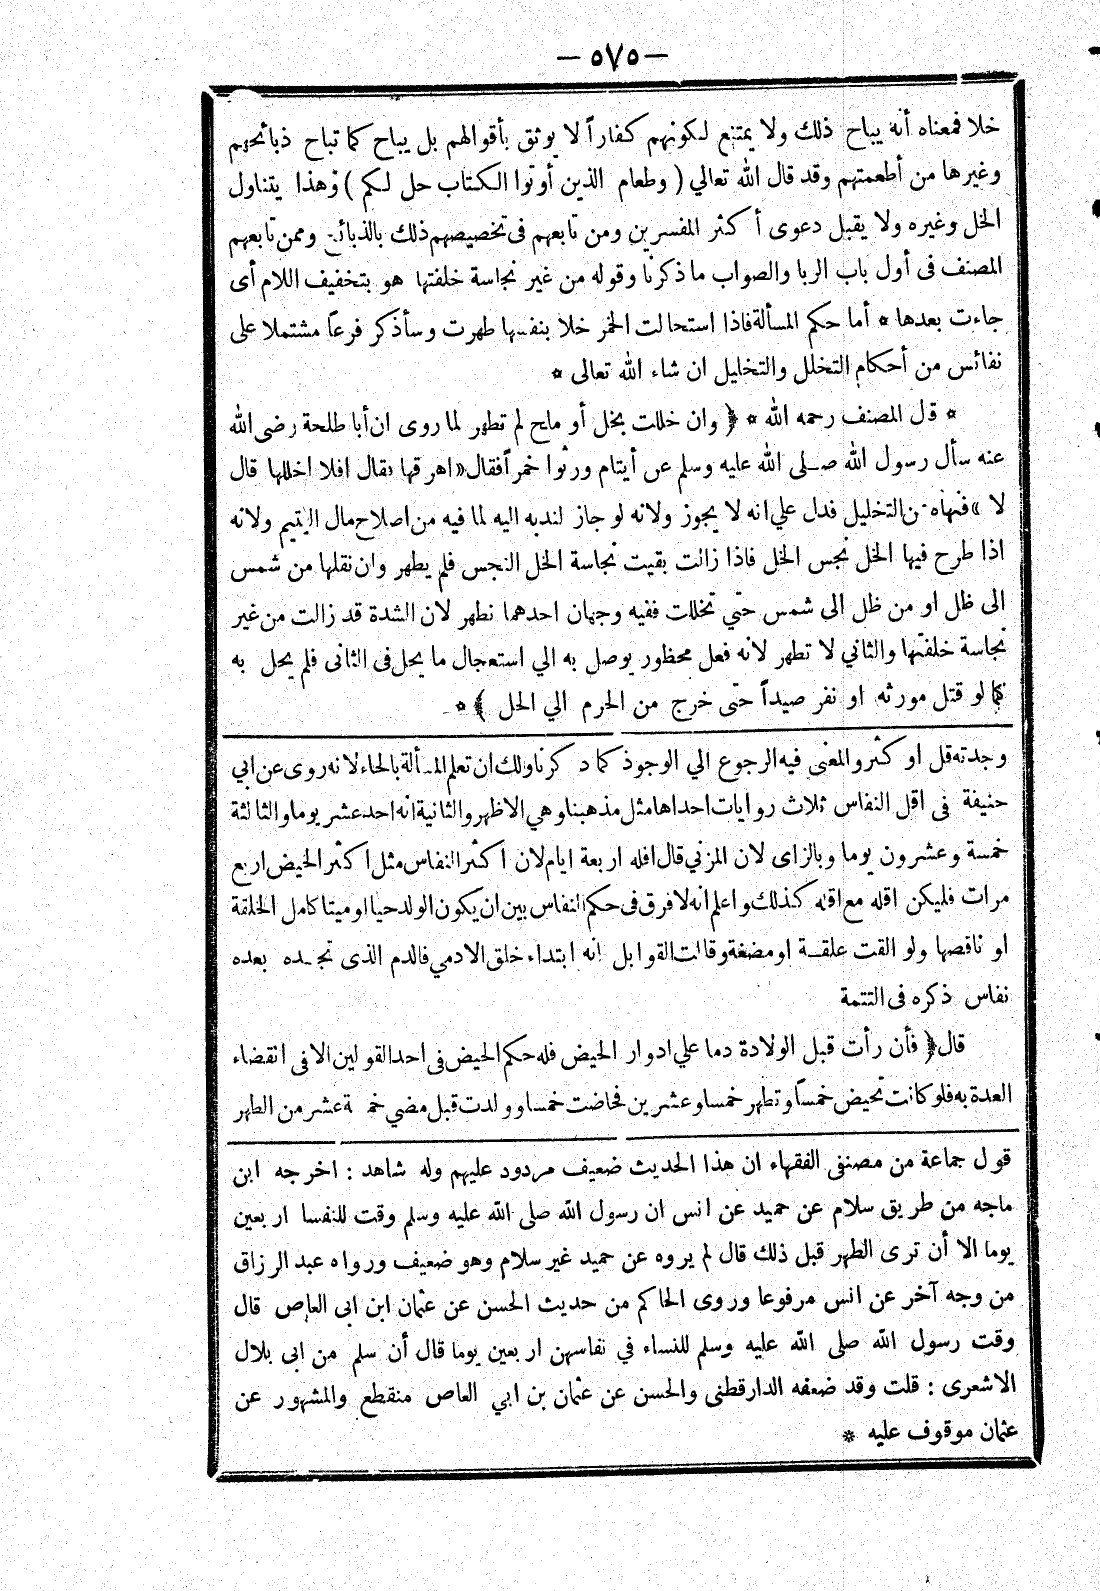 — ٥٧٥ —
خلا فمعناه أنه يباح ذلك ولا يمتنع لكونهم كفاراً لا يوثق بأقوالهم بل يباح كما تباح ذبائحهم
وغيرها من أطعمتهم وقد قال الله تعالي ( وطعام الذين أوتوا الكتاب حل لكم ) وهذا يتناول
الخل وغيره ولا يقبل دعوى أكثر المفسرين ومن تابعهم فى تخصيصهم ذلك بالذبائح وممن تابعهم
المصنف فى أول باب الربا والصواب ما ذكرنا وقوله من غير نجاسة خلفتها هو بتخفيف اللام أى
جاءت بعدها * أما حكم المسألة فاذا استحالت الخمر خلا بنفسها طهرت وسأذكر فرعاً مشتملا على
نفائس من أحكام التخلل والتخليل ان شاء الله تعالى *
* قال المصنف رحمه الله * ﴿ وان خللت بخل أو ملح لم تطهر لما روى ان أبا طلحة رضى الله
عنه سأل رسول الله صلى الله عليه وسلم عن أيتام ورثوا خمراً فقال « اهرقها فقال افلا اخللها قال
لا » فنهاه عن التخليل فدل علي انه لا يجوز ولانه لو جاز لندبه اليه لما فيه من اصلاح مال اليتيم ولانه
اذا طرح فيها الخل نجس الخل فاذا زالت بقيت نجاسة الخل النجس فلم يطهر وان نقلها من شمس
الى ظل او من ظل الى شمس حتي تخللت ففيه وجهان احدهما تطهر لان الشدة قد زالت من غير
نجاسة خلفتها والثاني لا تطهر لانه فعل محظور يوصل به الي استعجال ما يحل فى الثانى فلم يحل به
كما لو قتل مورثه او نفر صيداً حتى خرج من الحرم الي الحل ﴾ *
وجدته قل او كثر والمغى فيه الرجوع الي الوجود كما ذكرنا ولك ان تعلم المسألة بالحاء لانه روى عن ابي
حنيفة فى اقل النفاس ثلاث روايات احداها مثل مذهبنا وهي الاظهر والثانية انه احد عشر يوما والثالثة
خمسة وعشرون يوما وبالزاى لان المزني قال اقله اربعة ايام لان اكثر النفاس مثل اكثر الحيض اربع
مرات فليكن اقله مع اقله كذلك واعلم انه لا فرق فى حكم النفاس بين ان يكون الولد حيا او ميتا كامل الخلقة
او ناقصها ولو القت علقة او مضغة وقالت القوابل انه ابتداء خلق الادمي فالدم الذى تجده بعده
نفاس ذكره فى التتمة
قال ﴿ فأن رأت قبل الولادة دما علي ادوار الحيض فله حكم الحيض فى احد القولين الا فى انقضاء
العدة به فلو كانت تحيض خمساً وتطهر خمسا وعشرين فحاضت خمسا وولدت قبل مضي خمسة عشر من الطهر
قول جماعة من مصنفى الفقهاء ان هذا الحديث ضعيف مردود عليهم وله شاهد : اخرجه ابن
ماجه من طريق سلام عن حميد عن انس ان رسول الله صلى الله عليه وسلم وقت للنفسا اربعين
يوما الا أن ترى الطهر قبل ذلك قال لم يروه عن حميد غير سلام وهو ضعيف ورواه عبد الرزاق
من وجه آخر عن انس مرفوعا وروى الحاكم من حديث الحسن عن عثمان ابن ابى العاص قال
وقت رسول الله صلى الله عليه وسلم للنساء في نفاسهن اربعين يوما قال أن سلم من ابى بلال
الاشعرى : قلت وقد ضعفه الدارقطنى والحسن عن عثمان بن ابي العاص منقطع والمشهور عن
عثمان موقوف عليه *